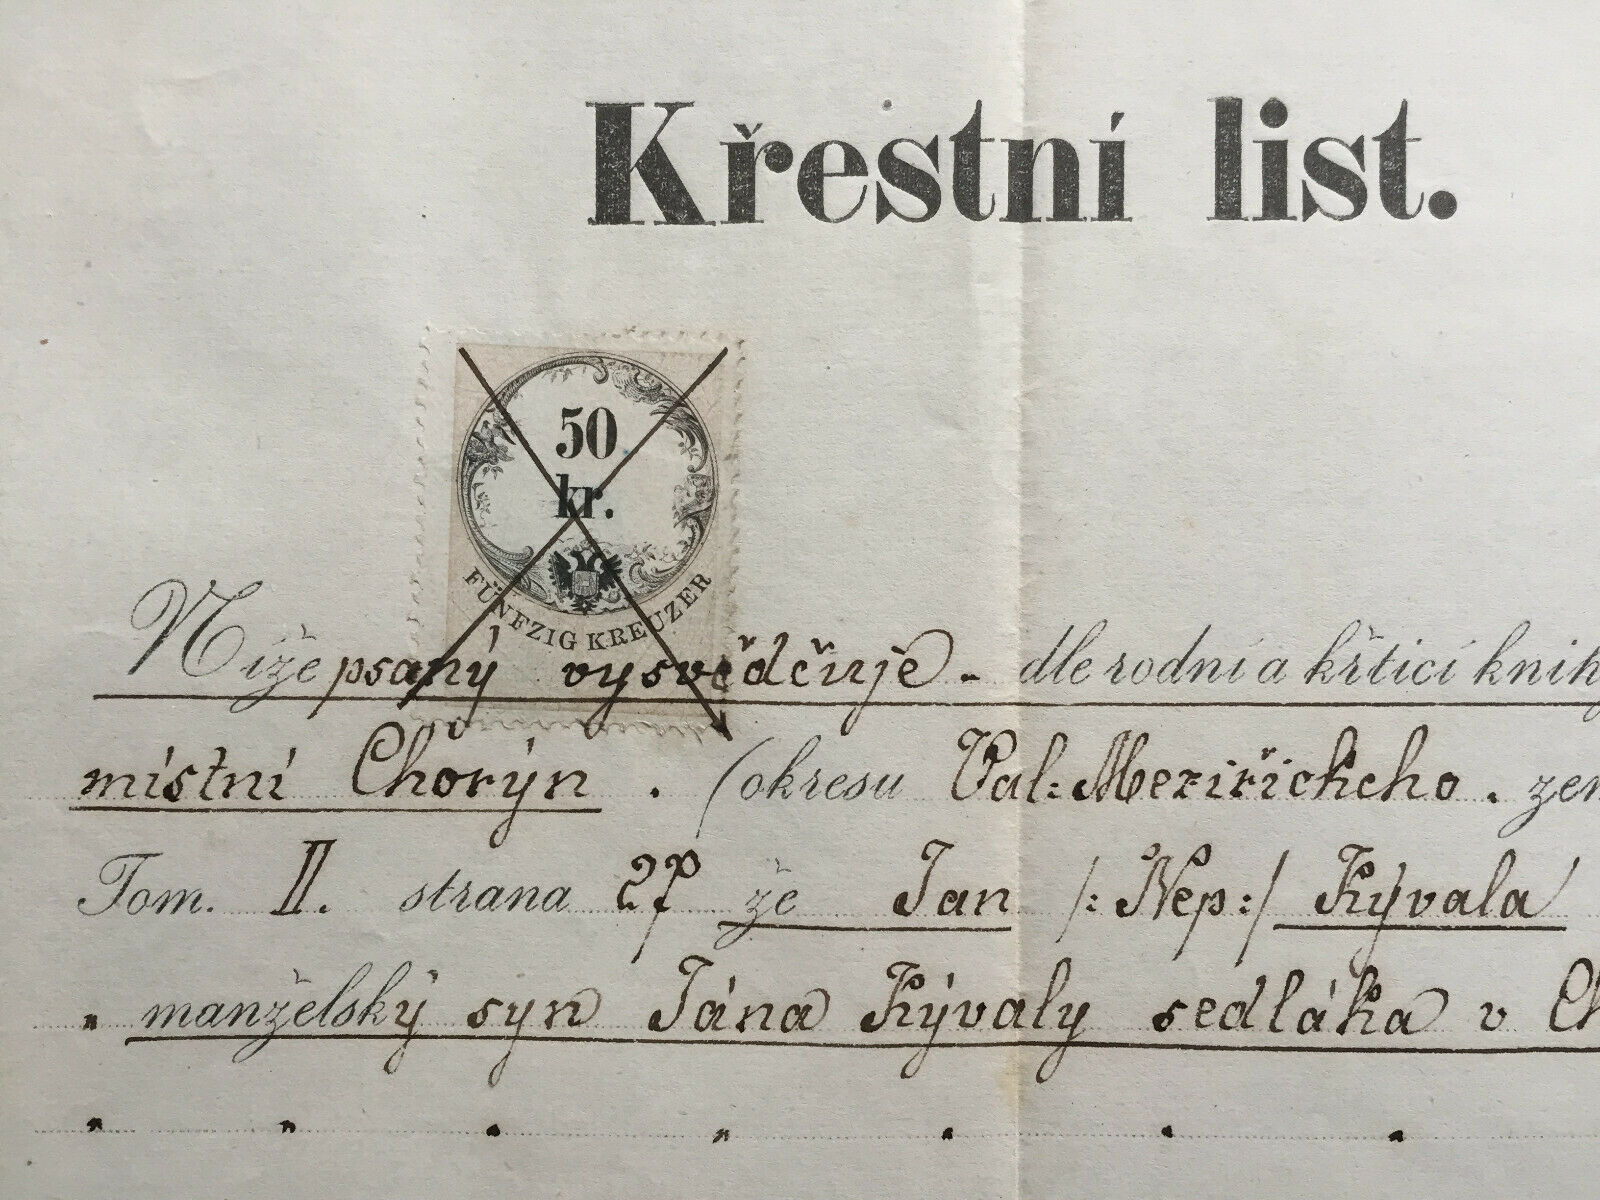 Křestní list.
50
kr.
FÜNFZIG KREUZER
Nížepsaný vysvědčuje - dle rodní a křticí knih
místní Chorýn . (okresu Val: Meziřickcho . zem
Tom. II. strana 27 že Jan /: Nep :/ Kývala
" manželský syn Jána Kývaly sedláka v Ch